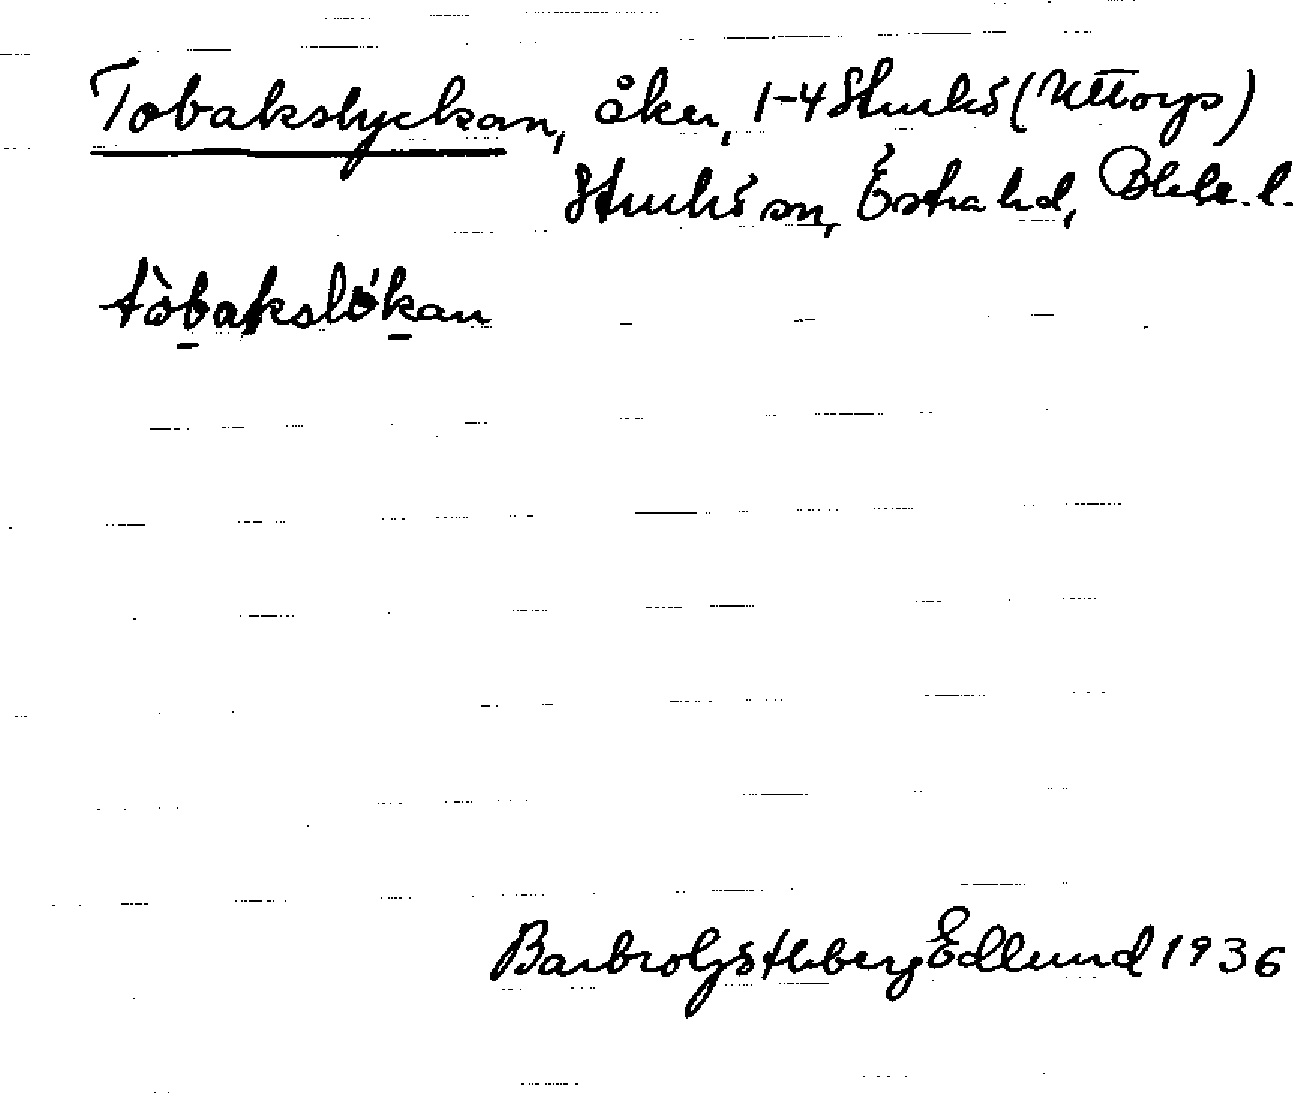 Tobakslyckan, åker, 1-4 Sturkö (Uttorp)
Sturkö sn, Östra hd, Blek. l.
tòbakslökan
Barbro Ljstberg Edlund 1936